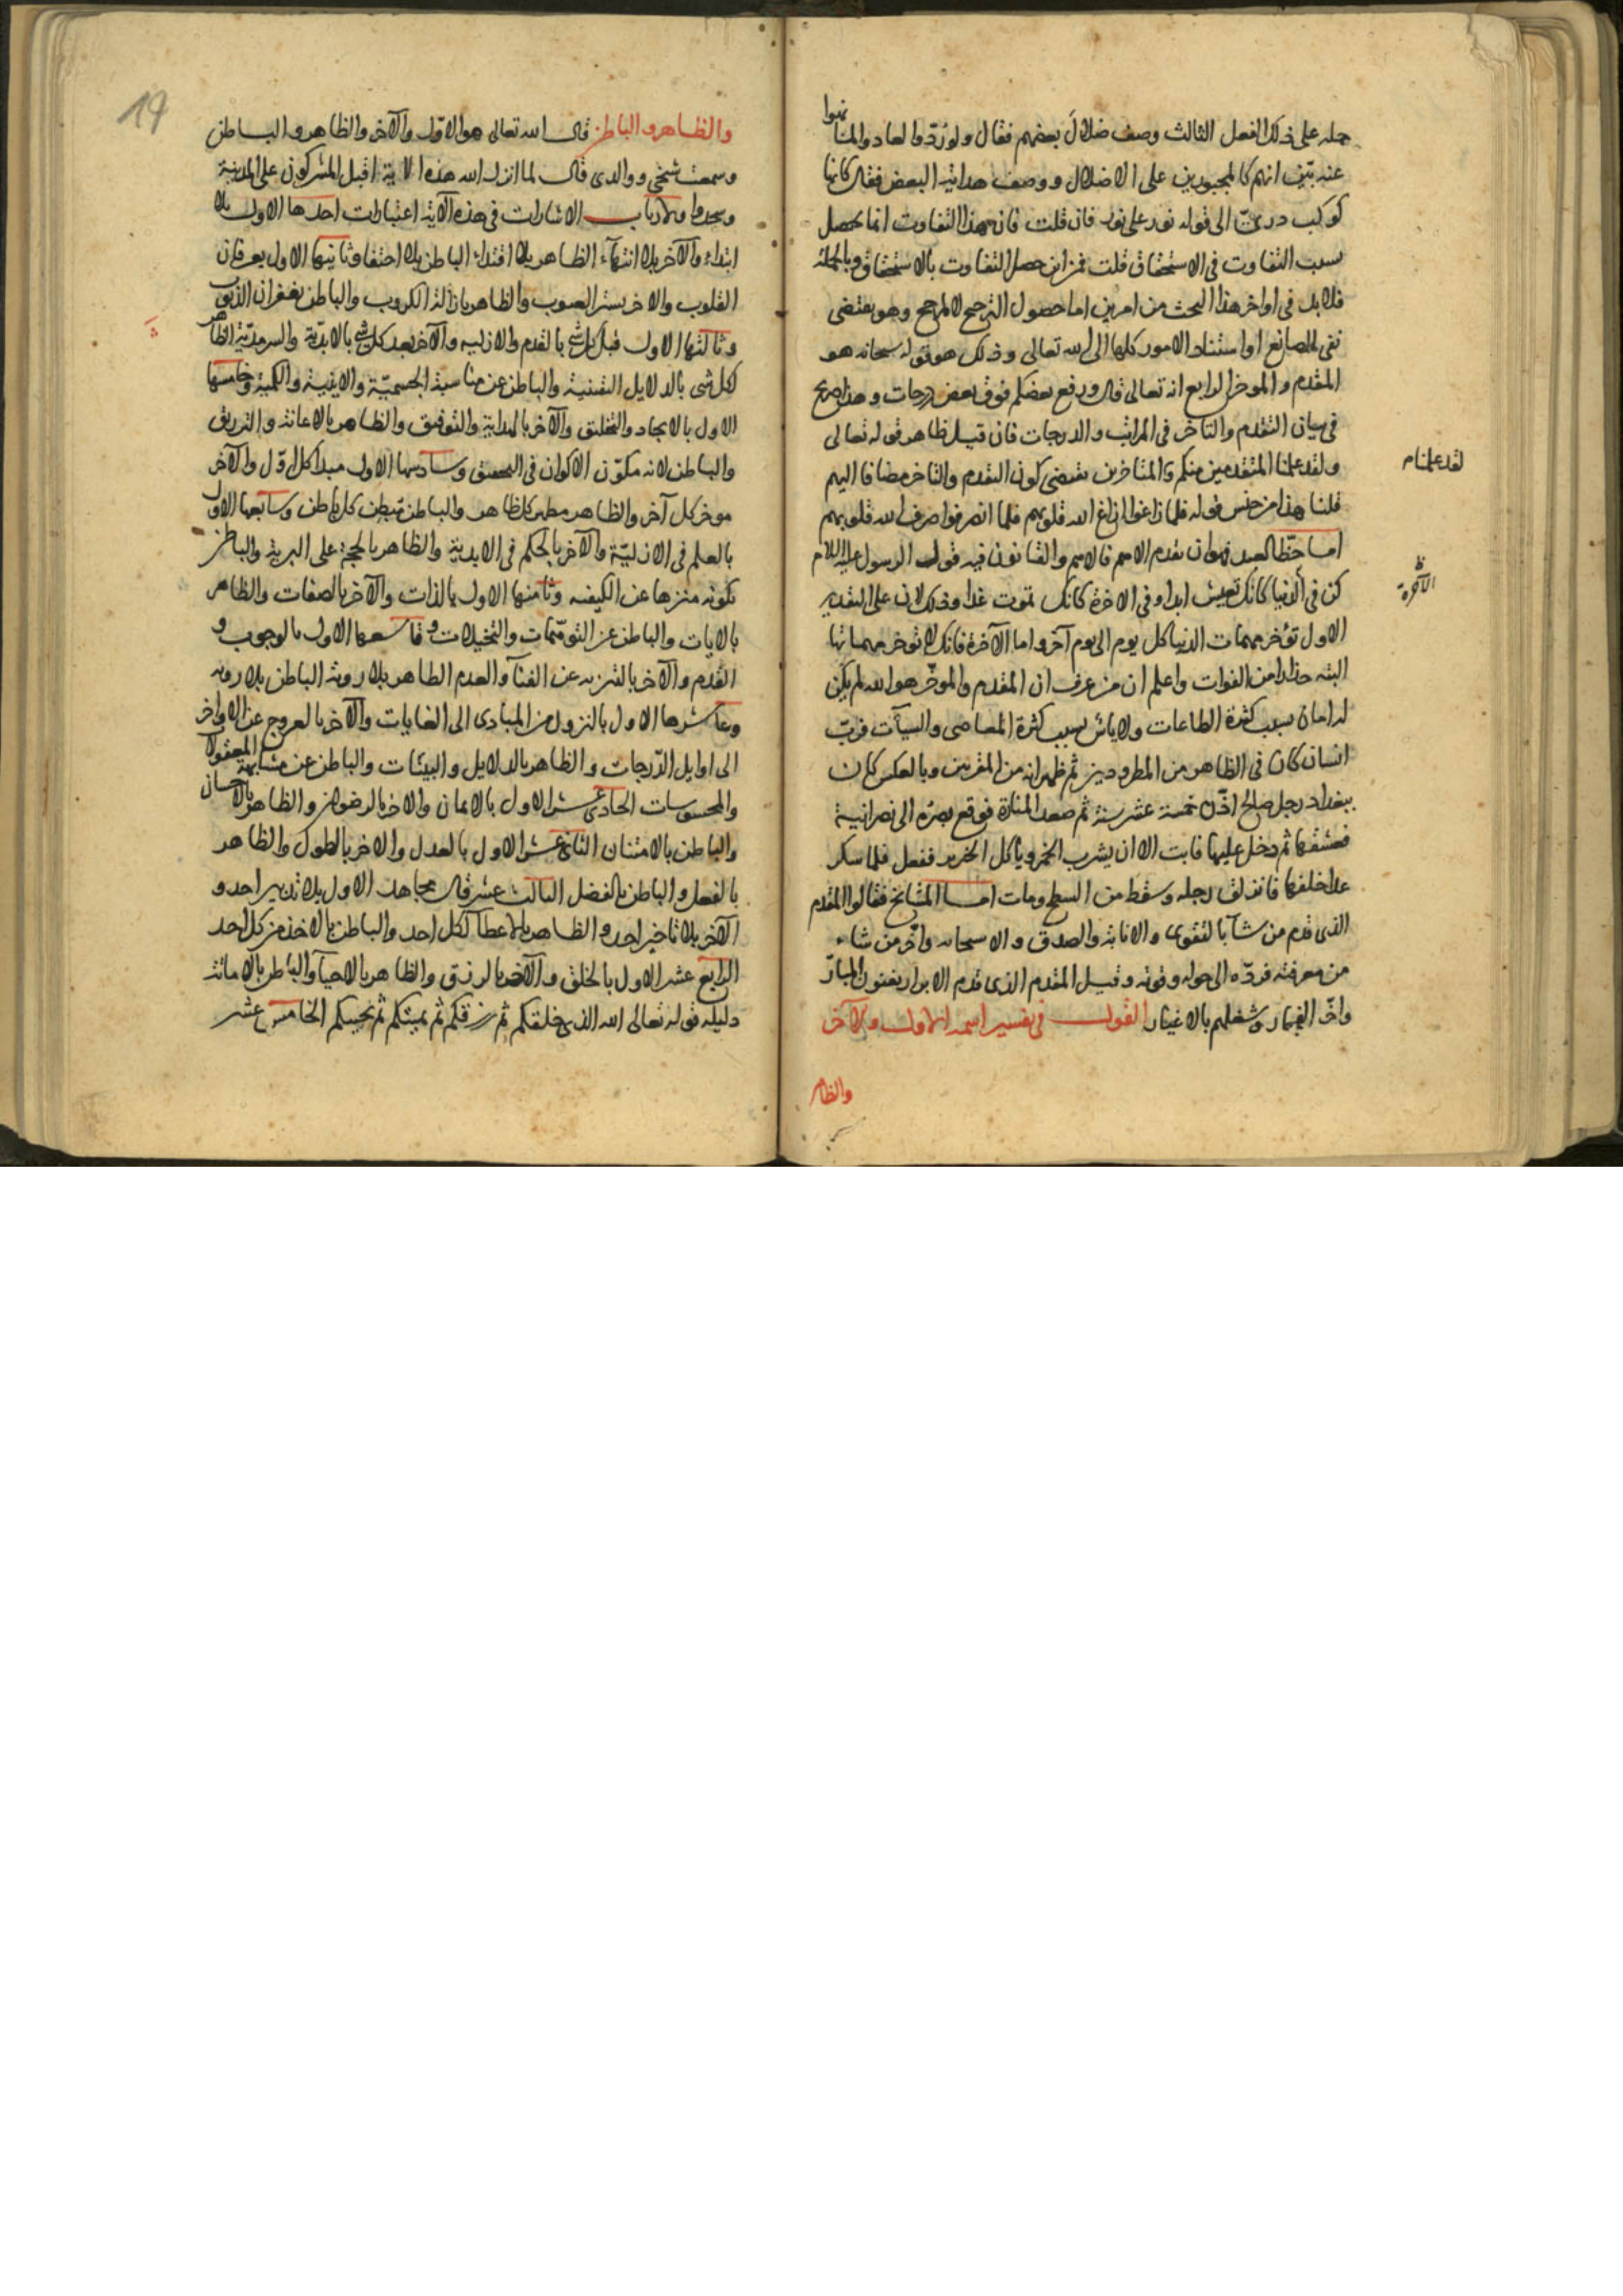 حمله على ذلك الفعل الثالث وصف ضلال بعضهم فقال ولو ردّوا لعادوا لما نهوا
عنه بيّن انهم كالمجبورين على الاضلال ووصف هداية البعض فقال كانها
كوكب درىّ الى قوله نور على نور فان قلت فان هذا التفاوت انما يحصل
بسبب التفاوت فى الاستحقاق قلت فمن اين حصل التفاوت بالاستحقاق وبالجملة
فلا بد فى اواخر هذا البحث من امرين اما حصول الترجيح لا لمرجح وهو يقتضى
نفى الصانع او استناد الامور كلها الى الله تعالى وذلك هو قوله سبحانه هو
المقدم والموخر الرابع انه تعالى قال ورفع بعضكم فوق بعض درجات وهذا صريح
فى بيان التقدم والتاخر فى المراتب والدرجات فان قيل ظاهر قوله تعالى
ولقد علمنا المتقدمين منكم والمتاخرين يقتضى كون التقدم والتاخر مضافا اليهم
قلنا هذا من جنس قوله فلما زاغوا ازاغ الله قلوبهم فلما انصرفوا صرف الله قلوبهم
اما حظ العبد فهو ان يقدم الاهم فالاهم والقانون فيه قول الرسول عليه السلام
كن فى الدنيا كانك تعيش ابدا وفى الاخرة كانك تموت غدا وذلك لان على التقدير
الاول تؤخر مهمات الدنيا كل يوم الى يوم آخر واما الآخرة فانك لا توخر مهماتها
البته حذارا من الفوات واعلم ان من عرف ان المقدم والموخّر هو الله لم يكن
له امان بسبب كثرة الطاعات ولا ياس بسبب كثرة المعاصى والسيآت فربّ
انسان كان فى الظاهر من المطرودين ثم ظهر انه من المقربين وبالعكس كان
ببغداد رجل صالح اذّن خمسة عشر سنة ثم صعد المنارة فوقع بصره الى نصرانية
فعشقها ثم دخل عليها فابت الا ان يشرب الخمر وياكل الخنزير ففعل فلما سكر
عدا خلفها فانزلق رجله وسقط من السطح ومات اما المشايخ فقالوا المقدم
الذى قدم من شا بالتقوى والانابة والصدق والا سحابه واخّر من شاء
من معرفته فردّه الى حوله وقوته وقيل المقدم الذى قدم الابرار بفنون المبارّ
واخّر الفجار وشغلهم بالاغيار القول فى تفسير اسمه الاول والآخر
والظاهر
لقد علمنا م
ظ
الآخرة
والظاهر والباطن قال الله تعالى هو الاوّل والآخر والظاهر والباطن
وسمعت شيخى ووالدى قال لما انزل الله هذه الاية اقبل المشركون على المدينة
وسجدوا ولارباب الاشارات فى هذه الآية اعتبارات احدها الاول بلا
ابتداء والآخر بلا انتهاء الظاهر بلا اقتداء الباطن بلا اختفا وثانيها الاول بعرفان
القلوب والاخر بستر العيوب والظاهر بازالة الكروب والباطن بغفران الذنوب
وثالثها الاول قبل كل شئ بالقدم والازليه والآخر بعد كل شئ بالابديّة والسرمديّة الظاهر
لكل شى بالدلايل اليقينية والباطن عن مناسبة الجسميّة والاينية والكمية وخامسها
الاول بالايجاد والتخليق والآخر بالهداية والتوفيق والظاهر بالاعانة والتزريق
والباطن لانه مكوّن الاكوان فى التحقيق وسادسها الاول مبدا كل اوّل والآخر
موخر كل آخر والظاهر مظهر كل ظاهر والباطن مبطن كل باطن وسابعها الاول
بالعلم فى الازليّة والآخر بالحكم فى الابدية والظاهر بالحجة على البرية والباطن
بكونه منزها عن الكيفيه وثامنها الاول بالذات والآخر بالصفات والظاهر
بالايات والباطن عن التوهّمات والتخيلات وتاسعها الاول بالوجوب و
القدم والآخر بالتنزيه عن الفنآ والعدم الظاهر بلا روية الباطن بلا رويه
وعاشرها الاول بالنزول من المبادى الى الغايات والآخر بالعروج عن الاواخر
الى اوايل الدّرجات والظاهر بالدلايل والبينات والباطن عن مشابهة المعقولات
والمحسوسات الحادى عشر الاول بالايمان والاخر بالرضوان والظاهر بالاحسان
والباطن بالامتنان الثانى عشر الاول بالعدل والاخر بالطول والظاهر
بالفعل والباطن بالفضل الثالث عشر قال مجاهد الاول بلا تدبير احد و
الآخر بلا تاخير احد والظاهر بالاعطا لكل احد والباطن بالاخذ من كل احد
الرابع عشر الاول بالخلق والآخر بالرزق والظاهر بالاحيا والباطن بالاماتة
دليله قوله تعالى الله الذى خلقكم ثم رزقكم ثم يميتكم ثم يحييكم الخامس عشر